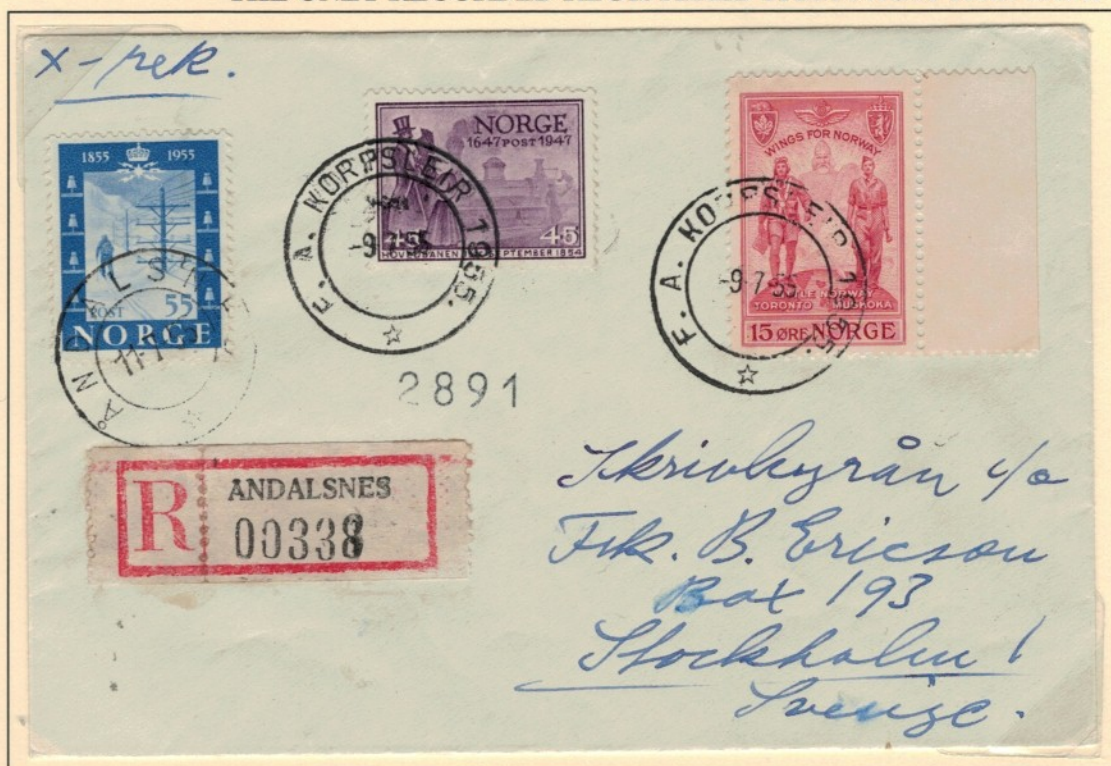 x-rek.
1855 1955
POST 55
NORGE
ÅNDALSNES
11-7-55
NORGE
1647 POST 1947
45 45
HOVEDBANEN SEPTEMBER 1854
F. A. KORPSLEIR 1955.
-9.7.55
WINGS FOR NORWAY
LITTLE NORWAY
TORONTO MUSKOKA
15 ØRE NORGE
F. A. KORPSLEIR 1955.
-9.7.55
2891
R ANDALSNES
00338
Skrivbyrån c/o
Frk. B. Ericson
Box 193
Stockholm 1
Sverige.